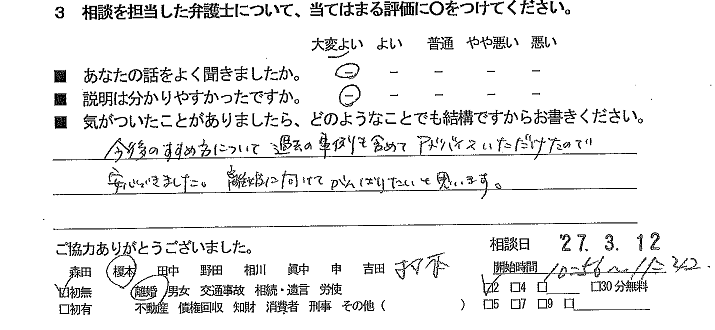 3 相談を担当した弁護士について、当てはまる評価に○をつけてください。
大変よい よい 普通 やや悪い 悪い
■ あなたの話をよく聞きましたか。 − − − − −
■ 説明は分かりやすかったですか。 − − − − −
■ 気がついたことがありましたら、どのようなことでも結構ですからお書きください。
今後のすすめ方について過去の事例も含めてアドバイスいただけたので
安心できました。離婚に向けてがんばりたいと思います。
ご協力ありがとうございました。 相談日 '27. 3. 12
森田 榎本 田中 野田 相川 眞中 申 吉田 開始時間 10=56~11=42
☑初無 離婚 男女 交通事故 相続・遺言 労使 ☑2 □4 □ □30分無料
□初有 不動産 債権回収 知財 消費者 刑事 その他( ) □5 □7 □9 □